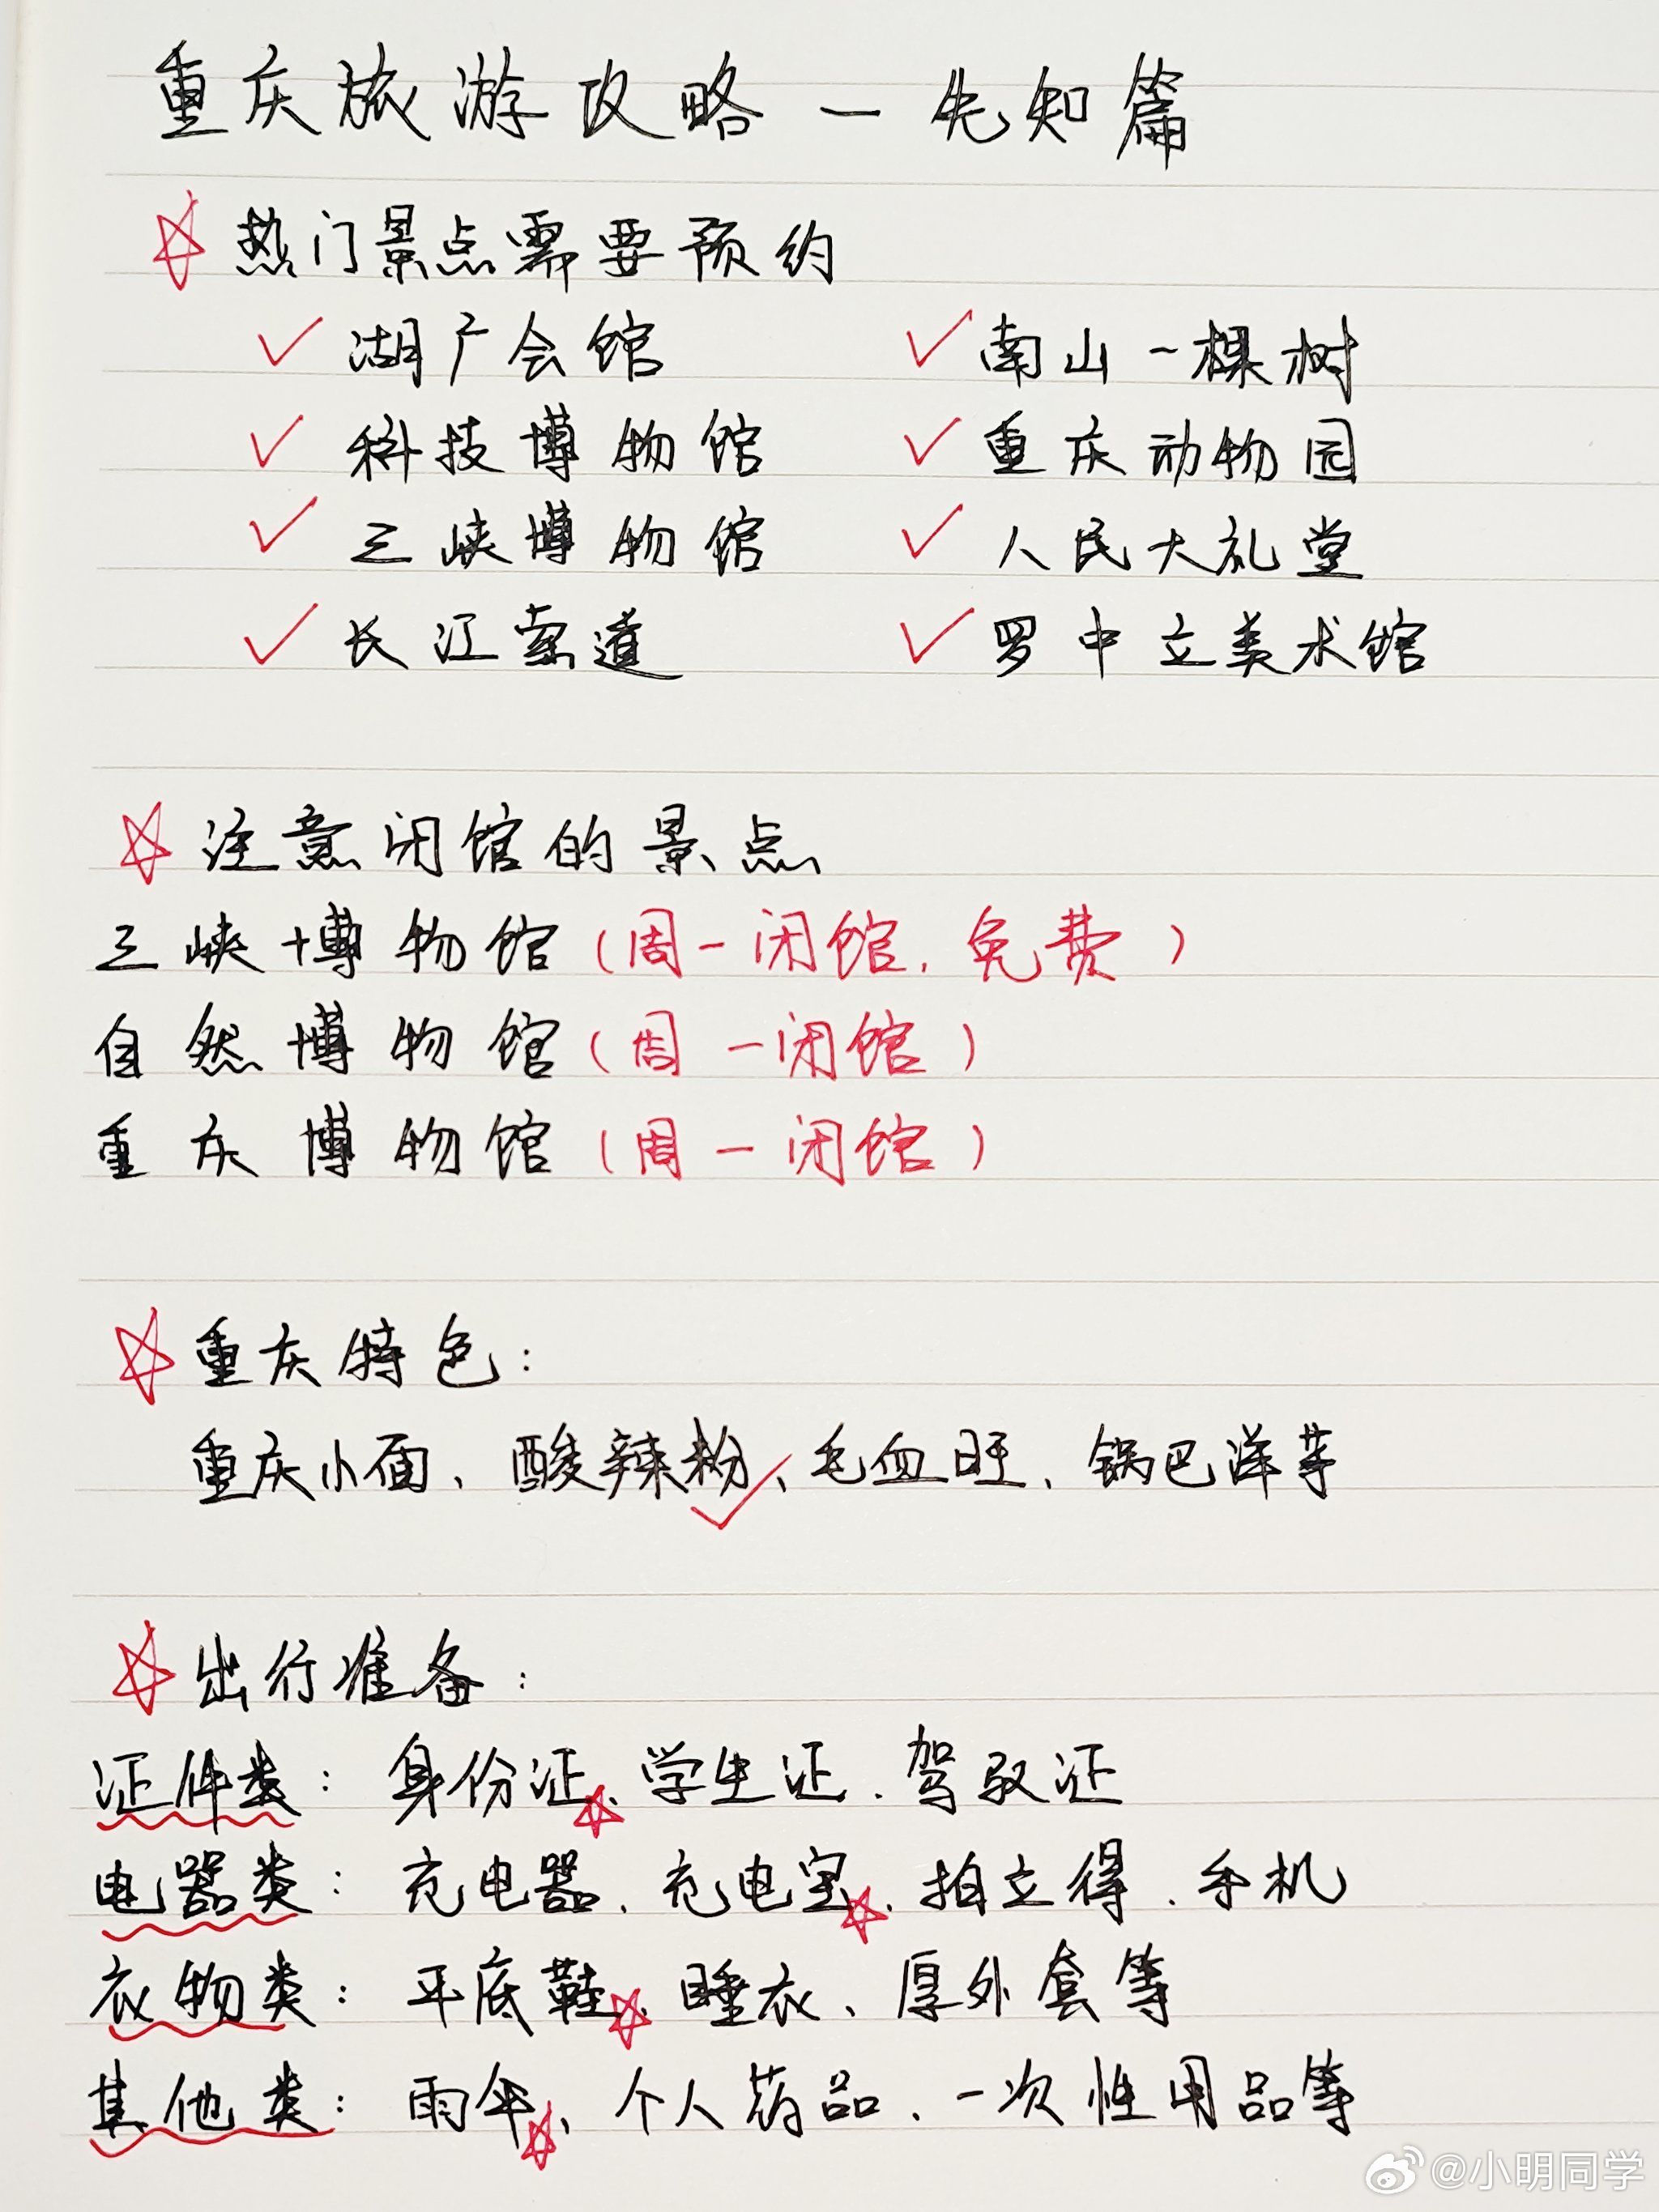 重庆旅游攻略－先知篇
热门景点需要预约
湖广会馆 南山一棵树
科技博物馆 重庆动物园
三峡博物馆 人民大礼堂
长江索道 罗中立美术馆
注意闭馆的景点
三峡博物馆(周一闭馆，免费)
自然博物馆(周一闭馆)
重庆博物馆(周一闭馆)
重庆特色：
重庆小面、酸辣粉、毛血旺、锅巴洋芋
出行准备：
证件类：身份证、学生证、驾驭证
电器类：充电器、充电宝、拍立得、手机
衣物类：平底鞋、睡衣、厚外套等
其他类：雨伞、个人药品、一次性用品等
@小明同学